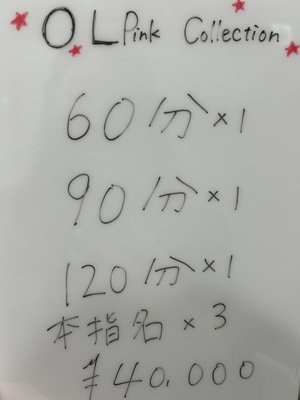 OL Pink Collection
60分×1
90分×1
120分×1
本指名×3
¥40.000